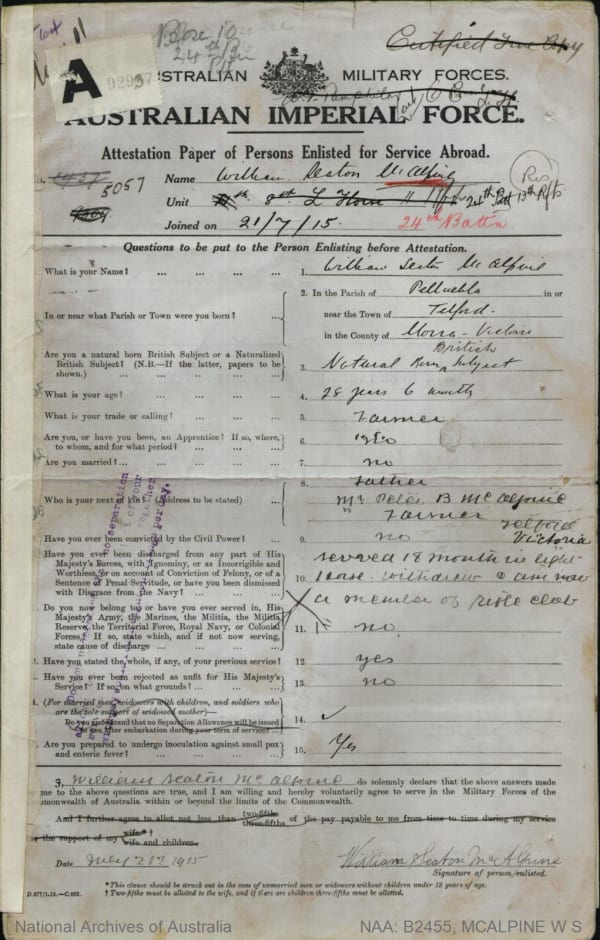 Certified True Copy
A 92937
AUSTRALIAN MILITARY FORCES.
AUSTRALIAN IMPERIAL FORCE.
Attestation Paper of Persons Enlisted for Service Abroad.
5057 Name William Seaton McAlpine
Unit 8th L Horse 24th Batt 13th R/fs
Joined on 21/7/15. 24th Battn
Questions to be put to the Person Enlisting before Attestation.
What is your Name? ... ... ... ... 1. William Seaton McAlpine
In or near what Parish or Town were you born? ... 2. In the Parish of Pelluebla in or
near the Town of Telford.
in the County of Moira - Victoria
Are you a natural born British Subject or a Naturalized British Subject? (N.B.—If the latter, papers to be shown.) ... 3. Natural Born British Subject
What is your age? ... ... ... ... 4. 28 years 6 months
What is your trade or calling? ... ... ... 5. Farmer
Are you, or have you been, an Apprentice? If so, where, to whom, and for what period? ... 6. No
Are you married? ... ... ... ... 7. no
Who is your next of kin? (Address to be stated) ... 8. Father
Mr Peter B McAlpine
Farmer Telford
Victoria
Have you ever been convicted by the Civil Power? ... 9. no
Have you ever been discharged from any part of His Majesty's Forces, with Ignominy, or as Incorrigible and Worthless, or on account of Conviction of Felony, or of a Sentence of Penal Servitude, or have you been dismissed with Disgrace from the Navy? ... 10. served 18 month in light
horse. withdrew & am now
a member of rifle club
Do you now belong to, or have you ever served in, His Majesty's Army, the Marines, the Militia, the Militia Reserve, the Territorial Force, Royal Navy, or Colonial Forces? If so, state which, and if not now serving, state cause of discharge ... 11. no
Have you stated the whole, if any, of your previous service? 12. yes
Have you ever been rejected as unfit for His Majesty's Service? If so, on what grounds? ... 13. no
(For married men, widowers with children, and soldiers who are the sole support of widowed mother)—
Do you understand that no Separation Allowance will be issued to you after embarkation during your term of service? ... 14. ✓
Are you prepared to undergo inoculation against small pox and enteric fever? ... 15. Yes
I, William Seaton McAlpine do solemnly declare that the above answers made
me to the above questions are true, and I am willing and hereby voluntarily agree to serve in the Military Forces of the
monwealth of Australia within or beyond the limits of the Commonwealth.
And I further agree to allot not less than two-fifths three-fifths of the pay payable to me from time to time during my service
for the support of my wife*† wife and children.
Date 1915 William Seaton McAlpine
Signature of person enlisted.
*This clause should be struck out in the case of unmarried men or widowers without children under 18 years of age.
† Two-fifths must be allotted to the wife, and if there are children three-fifths must be allotted.
National Archives of Australia NAA: B2455, MCALPINE W S